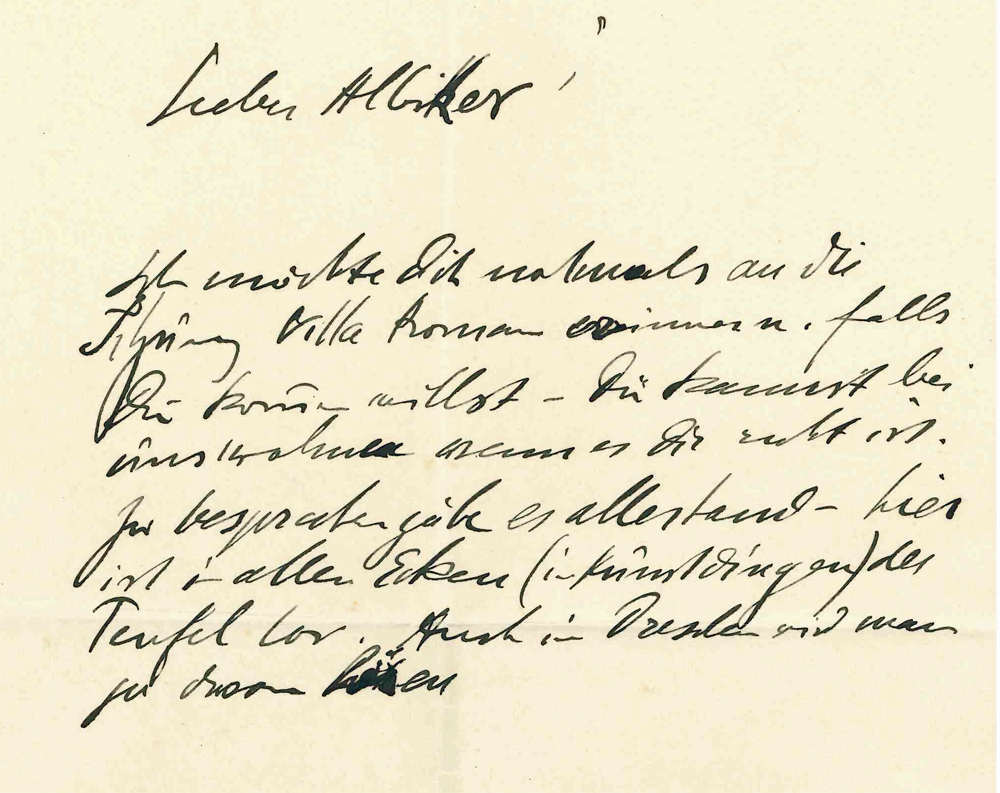 Lieber Albiker!
Ich möchte Dich nochmals an die
Villa Romana erinnern. falls
Du komen willst – Du kannst bei
uns wohnen wenn es Dir recht ist.
Zu besprechen gäbe es allerhand – hier
ist in allen Ecken (in Kunstdingen) der
Teufel los. Auch in Dresden wird man
zu